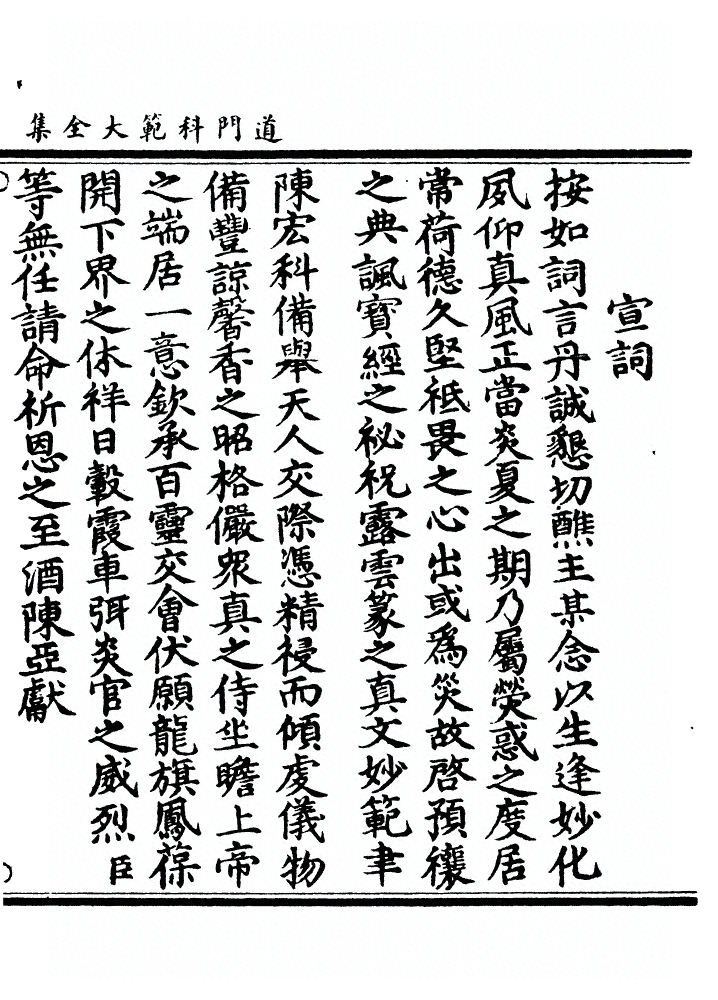 道門科範大全集
宣詞
按如詞言丹誠懇切醮主某念以生逢妙化
夙仰真風正當炎夏之期乃屬熒惑之度居
常荷德久堅祗畏之心出或為災故啓預禳
之典諷寶經之祕祝露雲篆之真文妙範聿
陳宏科備舉天人交際憑精祲而傾虔儀物
備豐諒馨香之昭格儼衆真之侍坐瞻上帝
之端居一意欽承百靈交會伏願龍旗鳳葆
開下界之休祥日轂霞車弭炎官之威烈臣
等無任請命祈恩之至酒陳亞獻